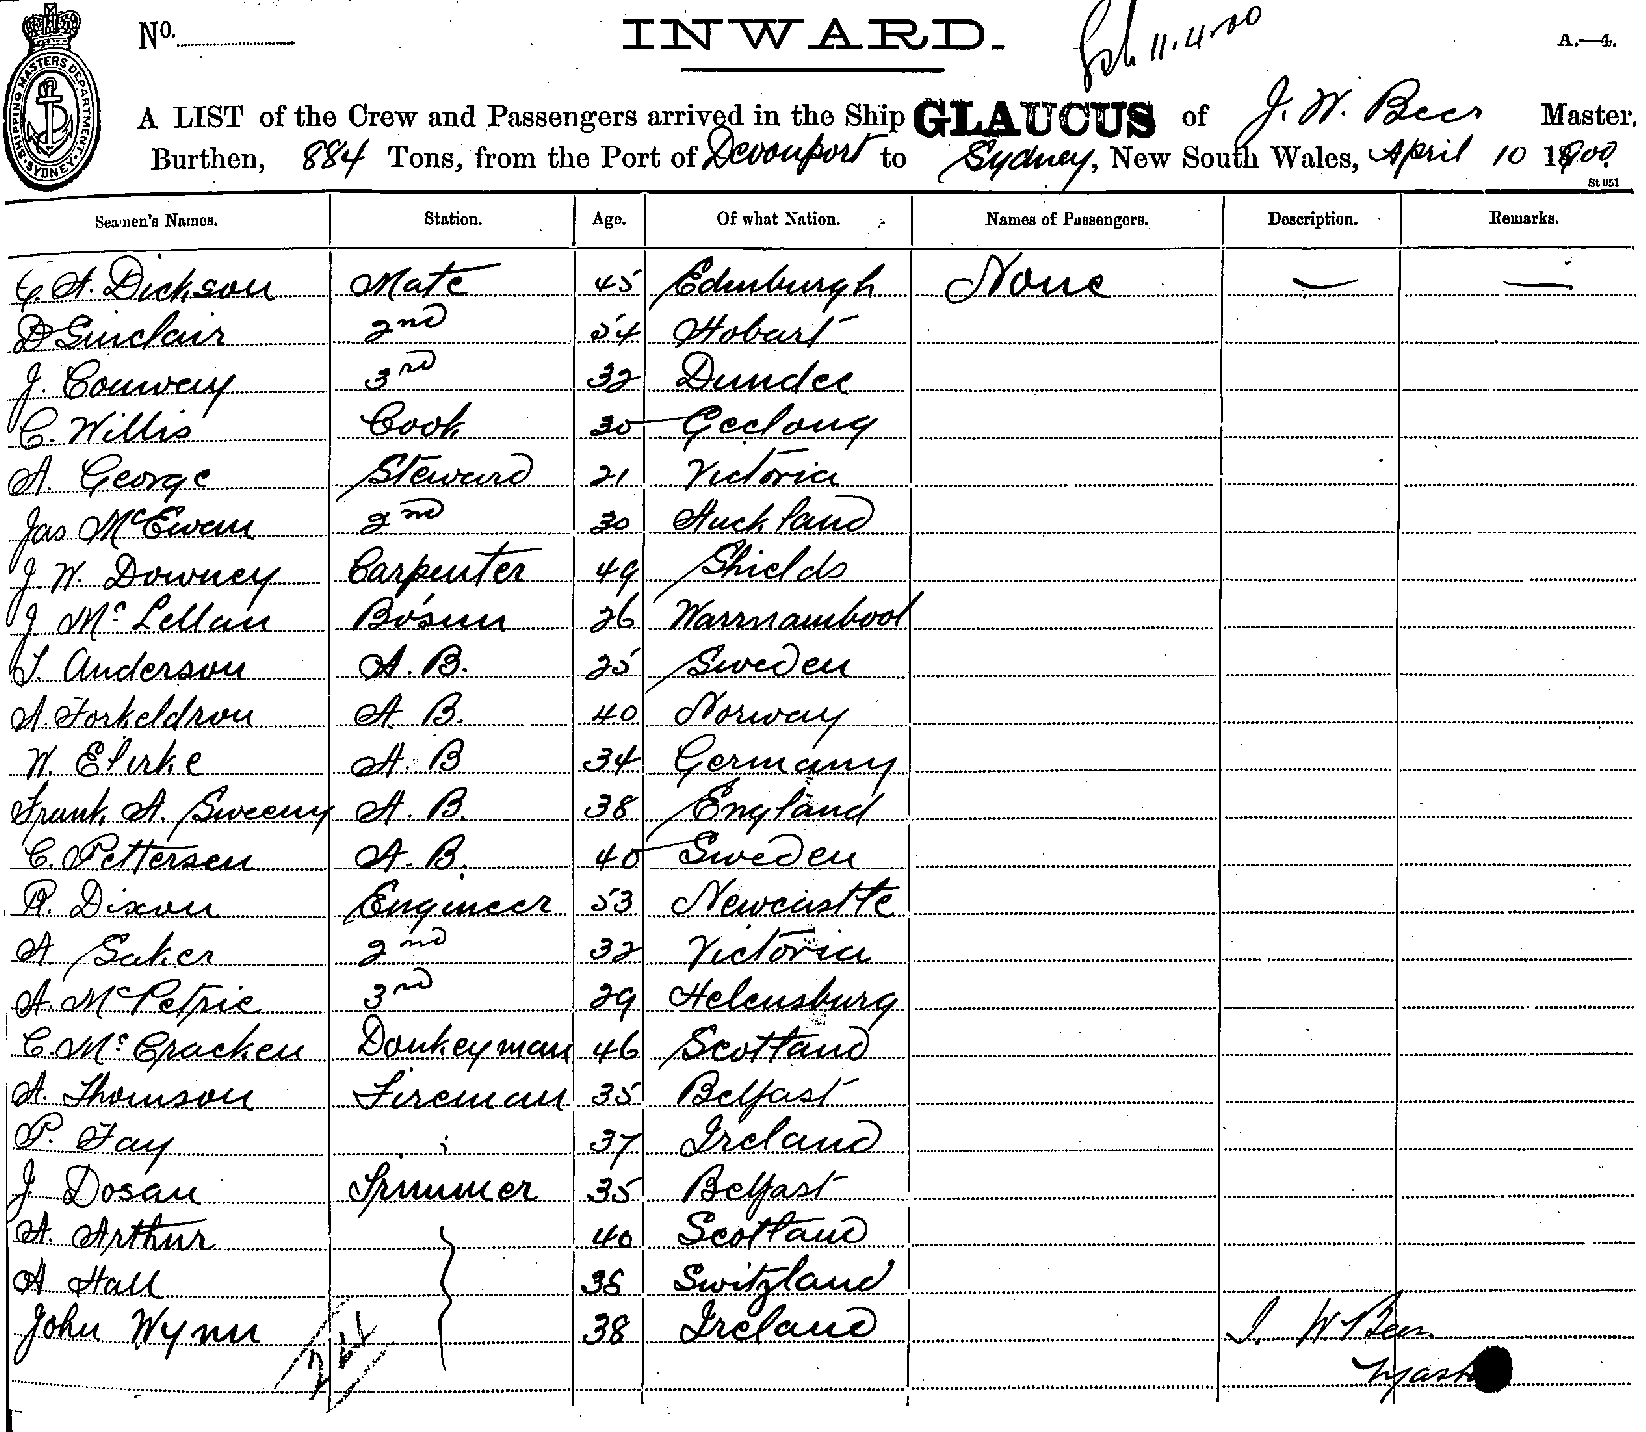 No.
INWARD.
11.4.00
A.—4.
SHIPPING MASTERS DEPARTMENT SYDNEY
A LIST of the Crew and Passengers arrived in the Ship GLAUCUS of J. W. Beer Master,
Burthen, 884 Tons, from the Port of Devonport to Sydney, New South Wales, April 10 1900.
St 051
Seamen's Names. Station. Age. Of what Nation. Names of Passengers. Description. Remarks.
A. Dickson Mate 45 Edinburgh None — —
D Sinclair 2nd 54 Hobart
J. Conway 3rd 32 Dundee
C. Willis Cook 30 Geelong
A. George Steward 21 Victoria
Jas McEwan 2nd 30 Auckland
J W. Downey Carpenter 49 Shields
J McLellan Bosun 26 Warrnambool
Anderson A. B. 25 Sweden
A. Torkeldron A B. 40 Norway
W. A. B 34 Germany
Frank A. Sweeny A. B. 38 England
C. Pettersen A. B. 40 Sweden
R. Dixon Engineer 53 Newcastle
A Saker 2nd 32 Victoria
A. McPetrie 3rd 29 Helensburg
C. McCracken Donkeyman 46 Scotland
A. Thomson Fireman 35 Belfast
P. Fay 37 Ireland
J Dosan Trimmer 35 Belfast
A. Arthur 40 Scotland
A Hall 36 Switzland
John Wynn 38 Ireland
J. W Beer
Mast